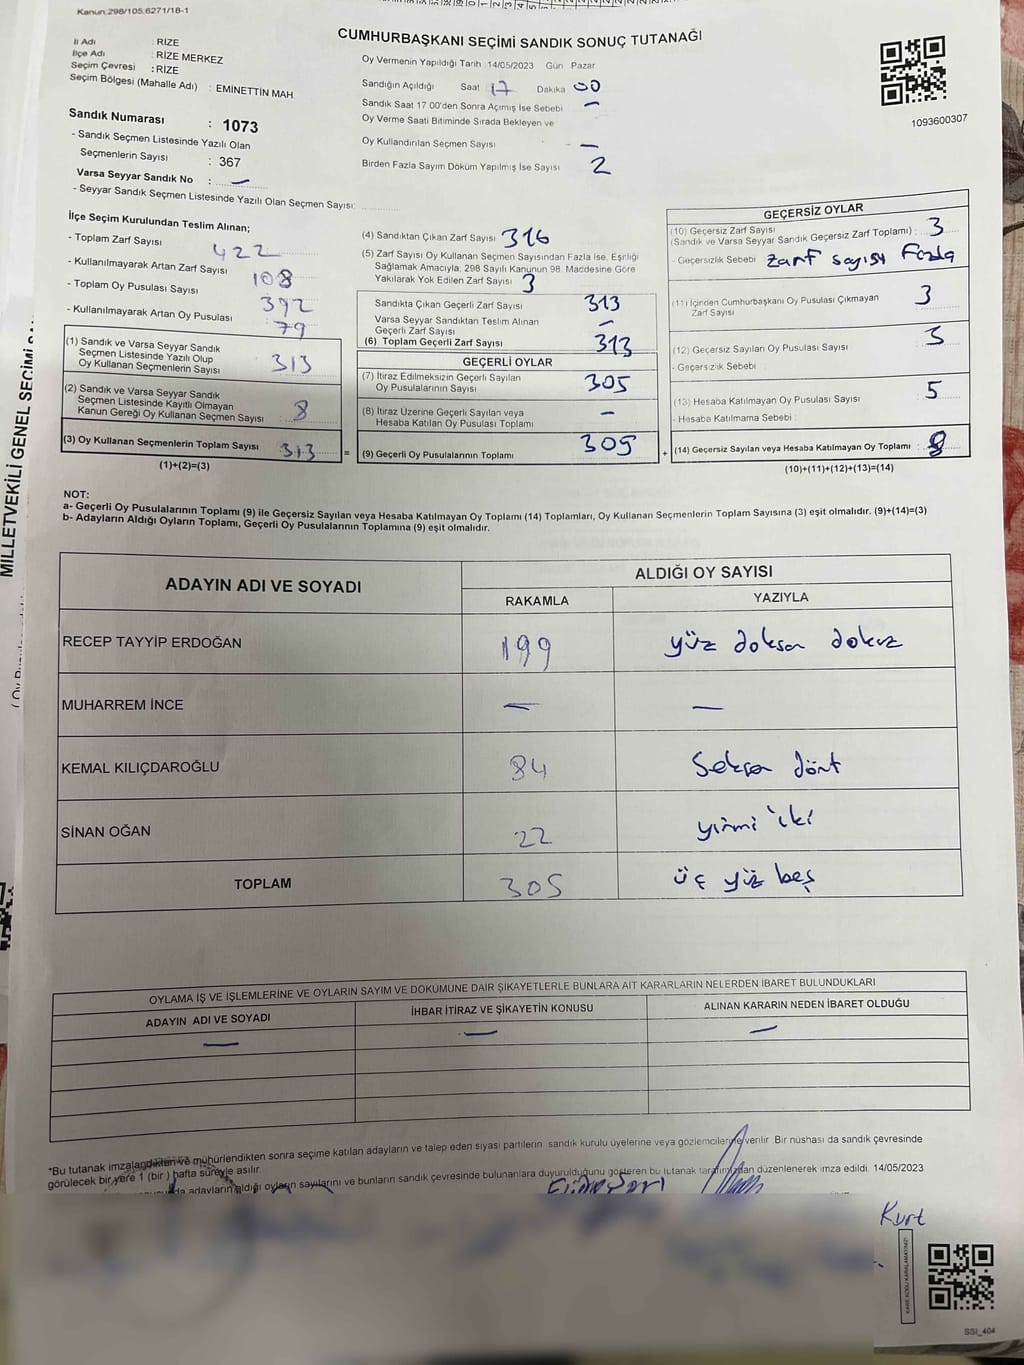 Kanun:298/105;6271/18-1
CUMHURBAŞKANI SEÇİMİ SANDIK SONUÇ TUTANAĞI
İli Adı : RİZE
İlçe Adı : RİZE MERKEZ
Seçim Çevresi : RİZE
Seçim Bölgesi (Mahalle Adı) : EMİNETTİN MAH.
Sandık Numarası : 1073
- Sandık Seçmen Listesinde Yazılı Olan
Seçmenlerin Sayısı : 367
Varsa Seyyar Sandık No : —
- Seyyar Sandık Seçmen Listesinde Yazılı Olan Seçmen Sayısı:
Oy Vermenin Yapıldığı Tarih :14/05/2023 Gün Pazar
Sandığın Açıldığı Saat 17 Dakika 00
Sandık Saat 17.00'den Sonra Açımış İse Sebebi —
Oy Verme Saati Bitiminde Sırada Bekleyen ve
Oy Kullandırılan Seçmen Sayısı —
Birden Fazla Sayım Döküm Yapılmış İse Sayısı 2
1093600307
İlçe Seçim Kurulundan Teslim Alınan;
- Toplam Zarf Sayısı 422
- Kullanılmayarak Artan Zarf Sayısı 108
- Toplam Oy Pusulası Sayısı 392
- Kullanılmayarak Artan Oy Pusulası 79
(1) Sandık ve Varsa Seyyar Sandık
Seçmen Listesinde Yazılı Olup
Oy Kullanan Seçmenlerin Sayısı 313
(2) Sandık ve Varsa Seyyar Sandık
Seçmen Listesinde Kayıtlı Olmayan
Kanun Gereği Oy Kullanan Seçmen Sayısı 8
(3) Oy Kullanan Seçmenlerin Toplam Sayısı 313 =
(1)+(2)=(3)
(4) Sandıktan Çıkan Zarf Sayısı 316
(5) Zarf Sayısı Oy Kullanan Seçmen Sayısından Fazla İse, Eşitliği
Sağlamak Amacıyla, 298 Sayılı Kanunun 98. Maddesine Göre
Yakılarak Yok Edilen Zarf Sayısı 3
Sandıkta Çıkan Geçerli Zarf Sayısı 313
Varsa Seyyar Sandıktan Teslim Alınan
Geçerli Zarf Sayısı —
(6) Toplam Geçerli Zarf Sayısı 313
GEÇERLİ OYLAR
(7) İtiraz Edilmeksizin Geçerli Sayılan
Oy Pusulalarının Sayısı 305
(8) İtiraz Üzerine Geçerli Sayılan veya
Hesaba Katılan Oy Pusulası Toplamı —
(9) Geçerli Oy Pusulalarının Toplamı 305 +
GEÇERSİZ OYLAR
(10) Geçersiz Zarf Sayısı
(Sandık ve Varsa Seyyar Sandık Geçersiz Zarf Toplamı) : 3
- Geçersizlik Sebebi : zarf sayısı fazla
(11) İçinden Cumhurbaşkanı Oy Pusulası Çıkmayan
Zarf Sayısı 3
(12) Geçersiz Sayılan Oy Pusulası Sayısı
- Geçersizlik Sebebi :
(13) Hesaba Katılmayan Oy Pusulası Sayısı 5
- Hesaba Katılmama Sebebi :
(14) Geçersiz Sayılan veya Hesaba Katılmayan Oy Toplamı : 8
(10)+(11)+(12)+(13)=(14)
NOT:
a- Geçerli Oy Pusulalarının Toplamı (9) ile Geçersiz Sayılan veya Hesaba Katılmayan Oy Toplamı (14) Toplamları, Oy Kullanan Seçmenlerin Toplam Sayısına (3) eşit olmalıdır. (9)+(14)=(3)
b- Adayların Aldığı Oyların Toplamı, Geçerli Oy Pusulalarının Toplamına (9) eşit olmalıdır.
ADAYIN ADI VE SOYADI ALDIĞI OY SAYISI
RAKAMLA YAZIYLA
RECEP TAYYİP ERDOĞAN 199 yüz doksan dokuz
MUHARREM İNCE — —
KEMAL KILIÇDAROĞLU 84 Seksen dört
SİNAN OĞAN 22 yirmi iki
TOPLAM 305 üç yüz beş
OYLAMA İŞ VE İŞLEMLERİNE VE OYLARIN SAYIM VE DÖKÜMÜNE DAİR ŞİKAYETLERLE BUNLARA AİT KARARLARIN NELERDEN İBARET BULUNDUKLARI
ADAYIN ADI VE SOYADI İHBAR İTİRAZ VE ŞİKAYETİN KONUSU ALINAN KARARIN NEDEN İBARET OLDUĞU
— — —
*Bu tutanak imzalandıktan ve mühürlendikten sonra seçime katılan adayların ve talep eden siyasi partilerin sandık kurulu üyelerine veya gözlemcilerine verilir. Bir nüshası da sandık çevresinde
görülecek bir yere 1 (bir ) hafta süreyle asılır.
adayların aldığı oyların sayılarını ve bunların sandık çevresinde bulunanlara duyurulduğunu gösteren bu tutanak tarafımızdan düzenlenerek imza edildi. 14/05/2023
Kurt
KARE KODU KARALAMAYINIZ!
SSI_404
MİLLETVEKİLİ GENEL SEÇİMİ